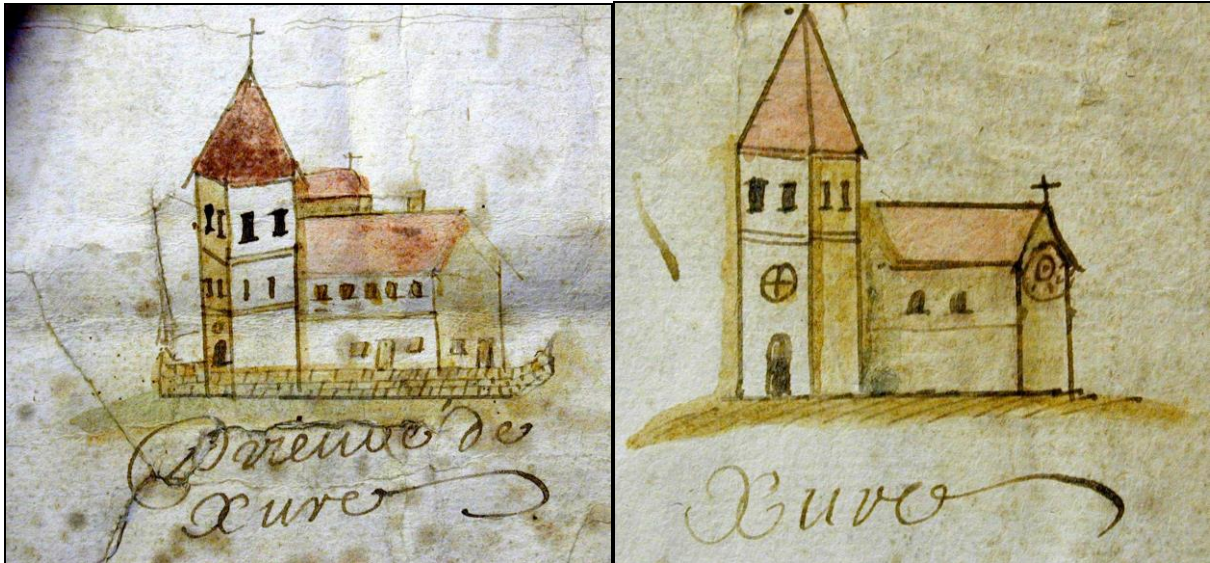 Prieuré de
Xure
Xure